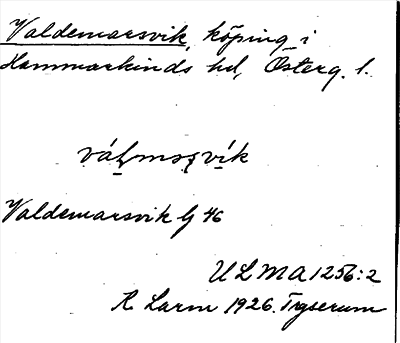 Valdemarsvik, köping i
Hammarkinds hd, Österg. l.
Valdemarsvik Lj 46
ULMA 1256:2
K. Larm 1926. Tryserum